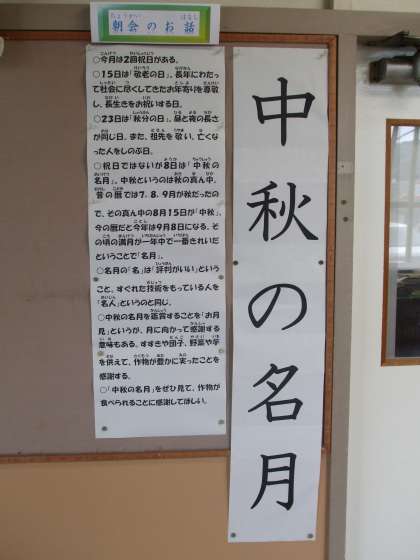 朝会のお話
○今月は2回祝日がある。
○15日は「敬老の日」。長年にわたっ
て社会に尽くしてきたお年寄りを尊敬
し、長生きをお祝いする日。
○23日は「秋分の日」。昼と夜の長さ
が同じ日。また、祖先を敬い、亡くな
った人をしのぶ日。
○祝日ではないが8日は「中秋の
名月」。中秋というのは秋の真ん中。
昔の暦では7.8.9月が秋だったの
で、その真ん中の8月15日が「中秋」。
今の暦だと今年は9月8日になる。そ
の頃の満月が一年中で一番きれいだ
ということで「名月」。
○名月の「名」は「評判がいい」という
こと。すぐれた技術をもっている人を
「名人」というのと同じ。
○中秋の名月を鑑賞することを「お月
見」というが、月に向かって感謝する
意味もある。すすきや団子、野菜や芋
を供えて、作物が豊かに実ったことを
感謝する。
○「中秋の名月」をぜひ見て、作物が
食べられることに感謝してほしい。
中秋の名月